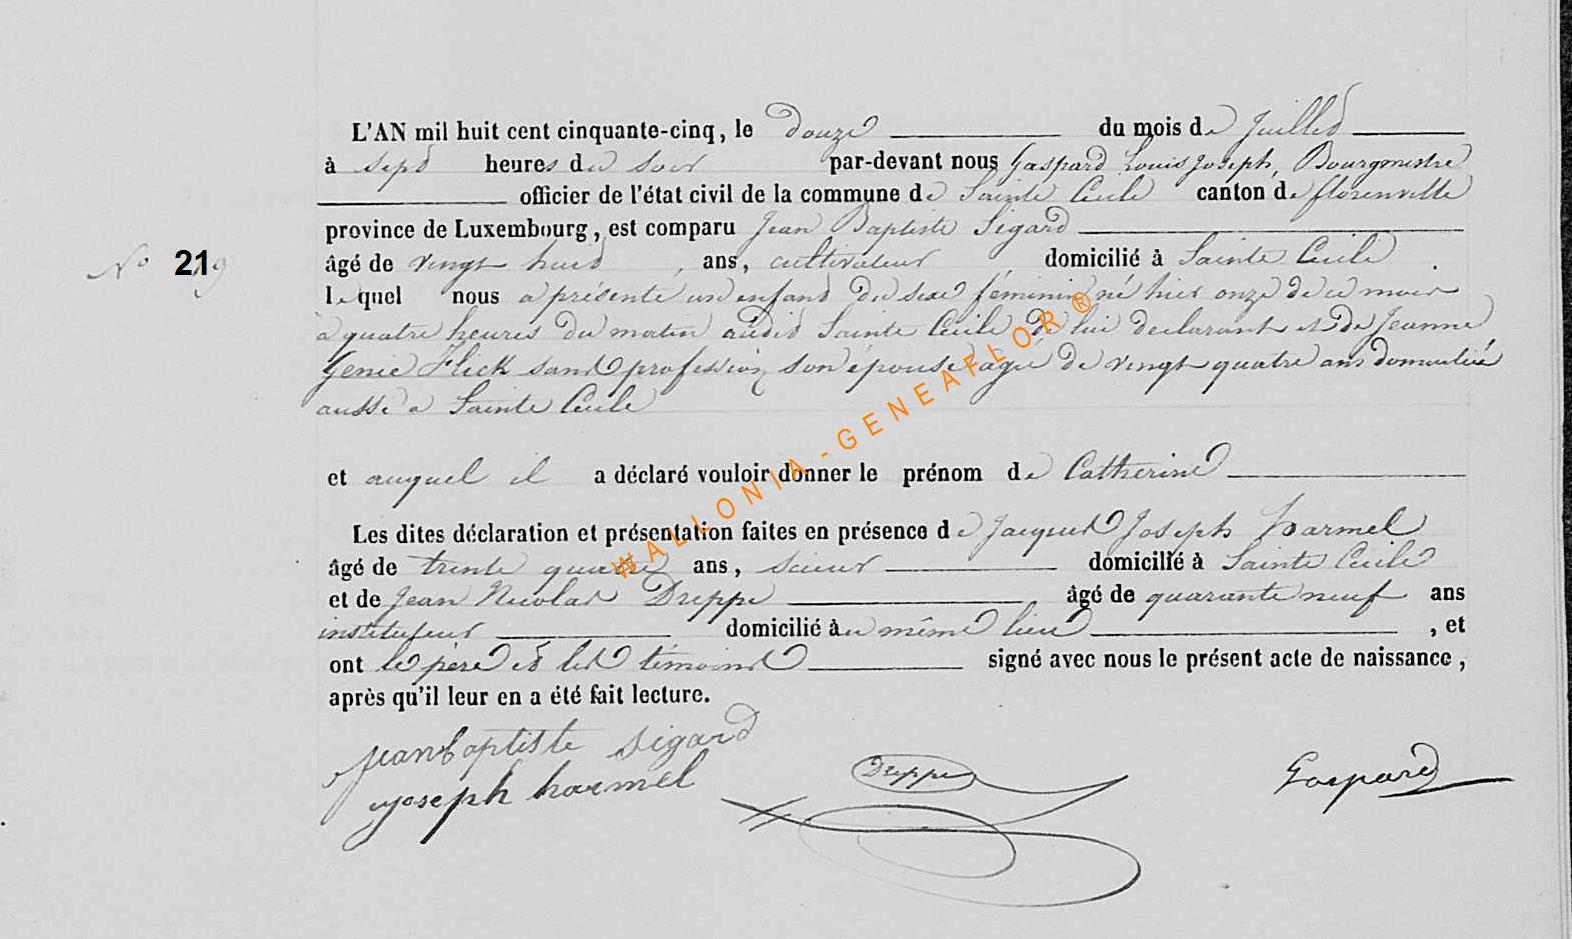 L'AN mil huit cent cinquante-cinq, le douze du mois de Juillet
à sept heures du soir par-devant nous Gaspard Louis Joseph, Bourgmestre
officier de l'état civil de la commune de Sainte Cécile canton de florenville
province de Luxembourg, est comparu Jean Baptiste Sigard
N° 21
âgé de vingt huit, ans, cultivateur domicilié à Sainte Cécile
lequel nous a présenté un enfant du sexe féminin né hier onze de ce mois
à quatre heures du matin audit Sainte Cécile de lui declarant et de Jeanne
Genie Flick sans profession, son épouse agée de vingt quatre ans domiciliée
aussi a Sainte Cécile
et auquel il a déclaré vouloir donner le prénom de Catherine
Les dites déclaration et présentation faites en présence de Jacques Joseph harmel
âgé de trente quatre ans, scieur domicilié à Sainte Cécile
et de Jean Nicolas Dreppe âgé de quarante neuf ans
instituteur domicilié au même lieu, et
ont le père et les témoins signé avec nous le présent acte de naissance,
après qu'il leur en a été fait lecture.
jean baptiste sigard
joseph harmel
Dreppe
Gaspard
WALLONIA - GENEAFLOR ®